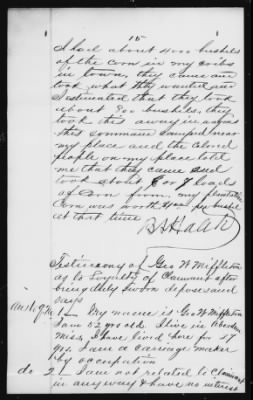 15
I had about 4000 bushels
of the Corn in my cribs
in town, they came and
took what they wanted and
I estimated that they took
about 800 bushels, they
took this away in
this command camped near
my place and the colored
people on my place told
me that they came and
took about 6 or 7 loads
of corn from my plantation
Corn was worth per bushel
at that time
Testimony of Geo W Miffleton
as to Loyalty of Claimant after
being duly sworn deposes and
says
1 My name is Geo W Miffleton
I am 52 yrs old. I live in Aberdeen
Miss, I have lived here for 27
yrs. I am a Carriage maker
by occupation
do 2 I am not related to Claimant
in any way & have no interest